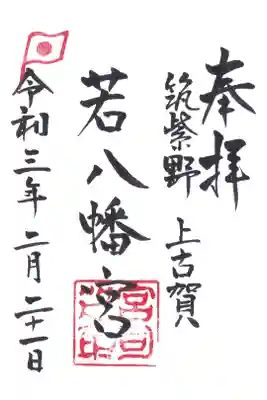 奉拝
筑紫野 上古賀
若八幡宮
令和三年二月二十一日